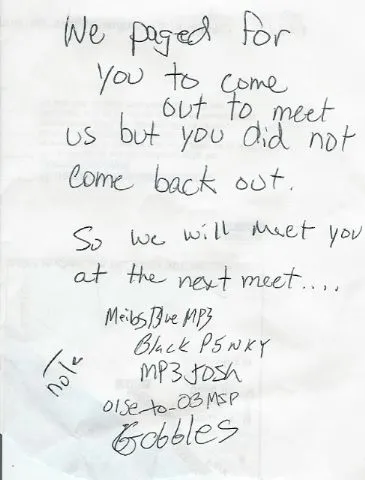 We paged for
you to come
out to meet
us but you did not
come back out.
So we will meet you
at the next meet....
MeibsBlue MP3
Black P5NKY
MP3JOSH
note
01Se_to_03MSP
Gobbles